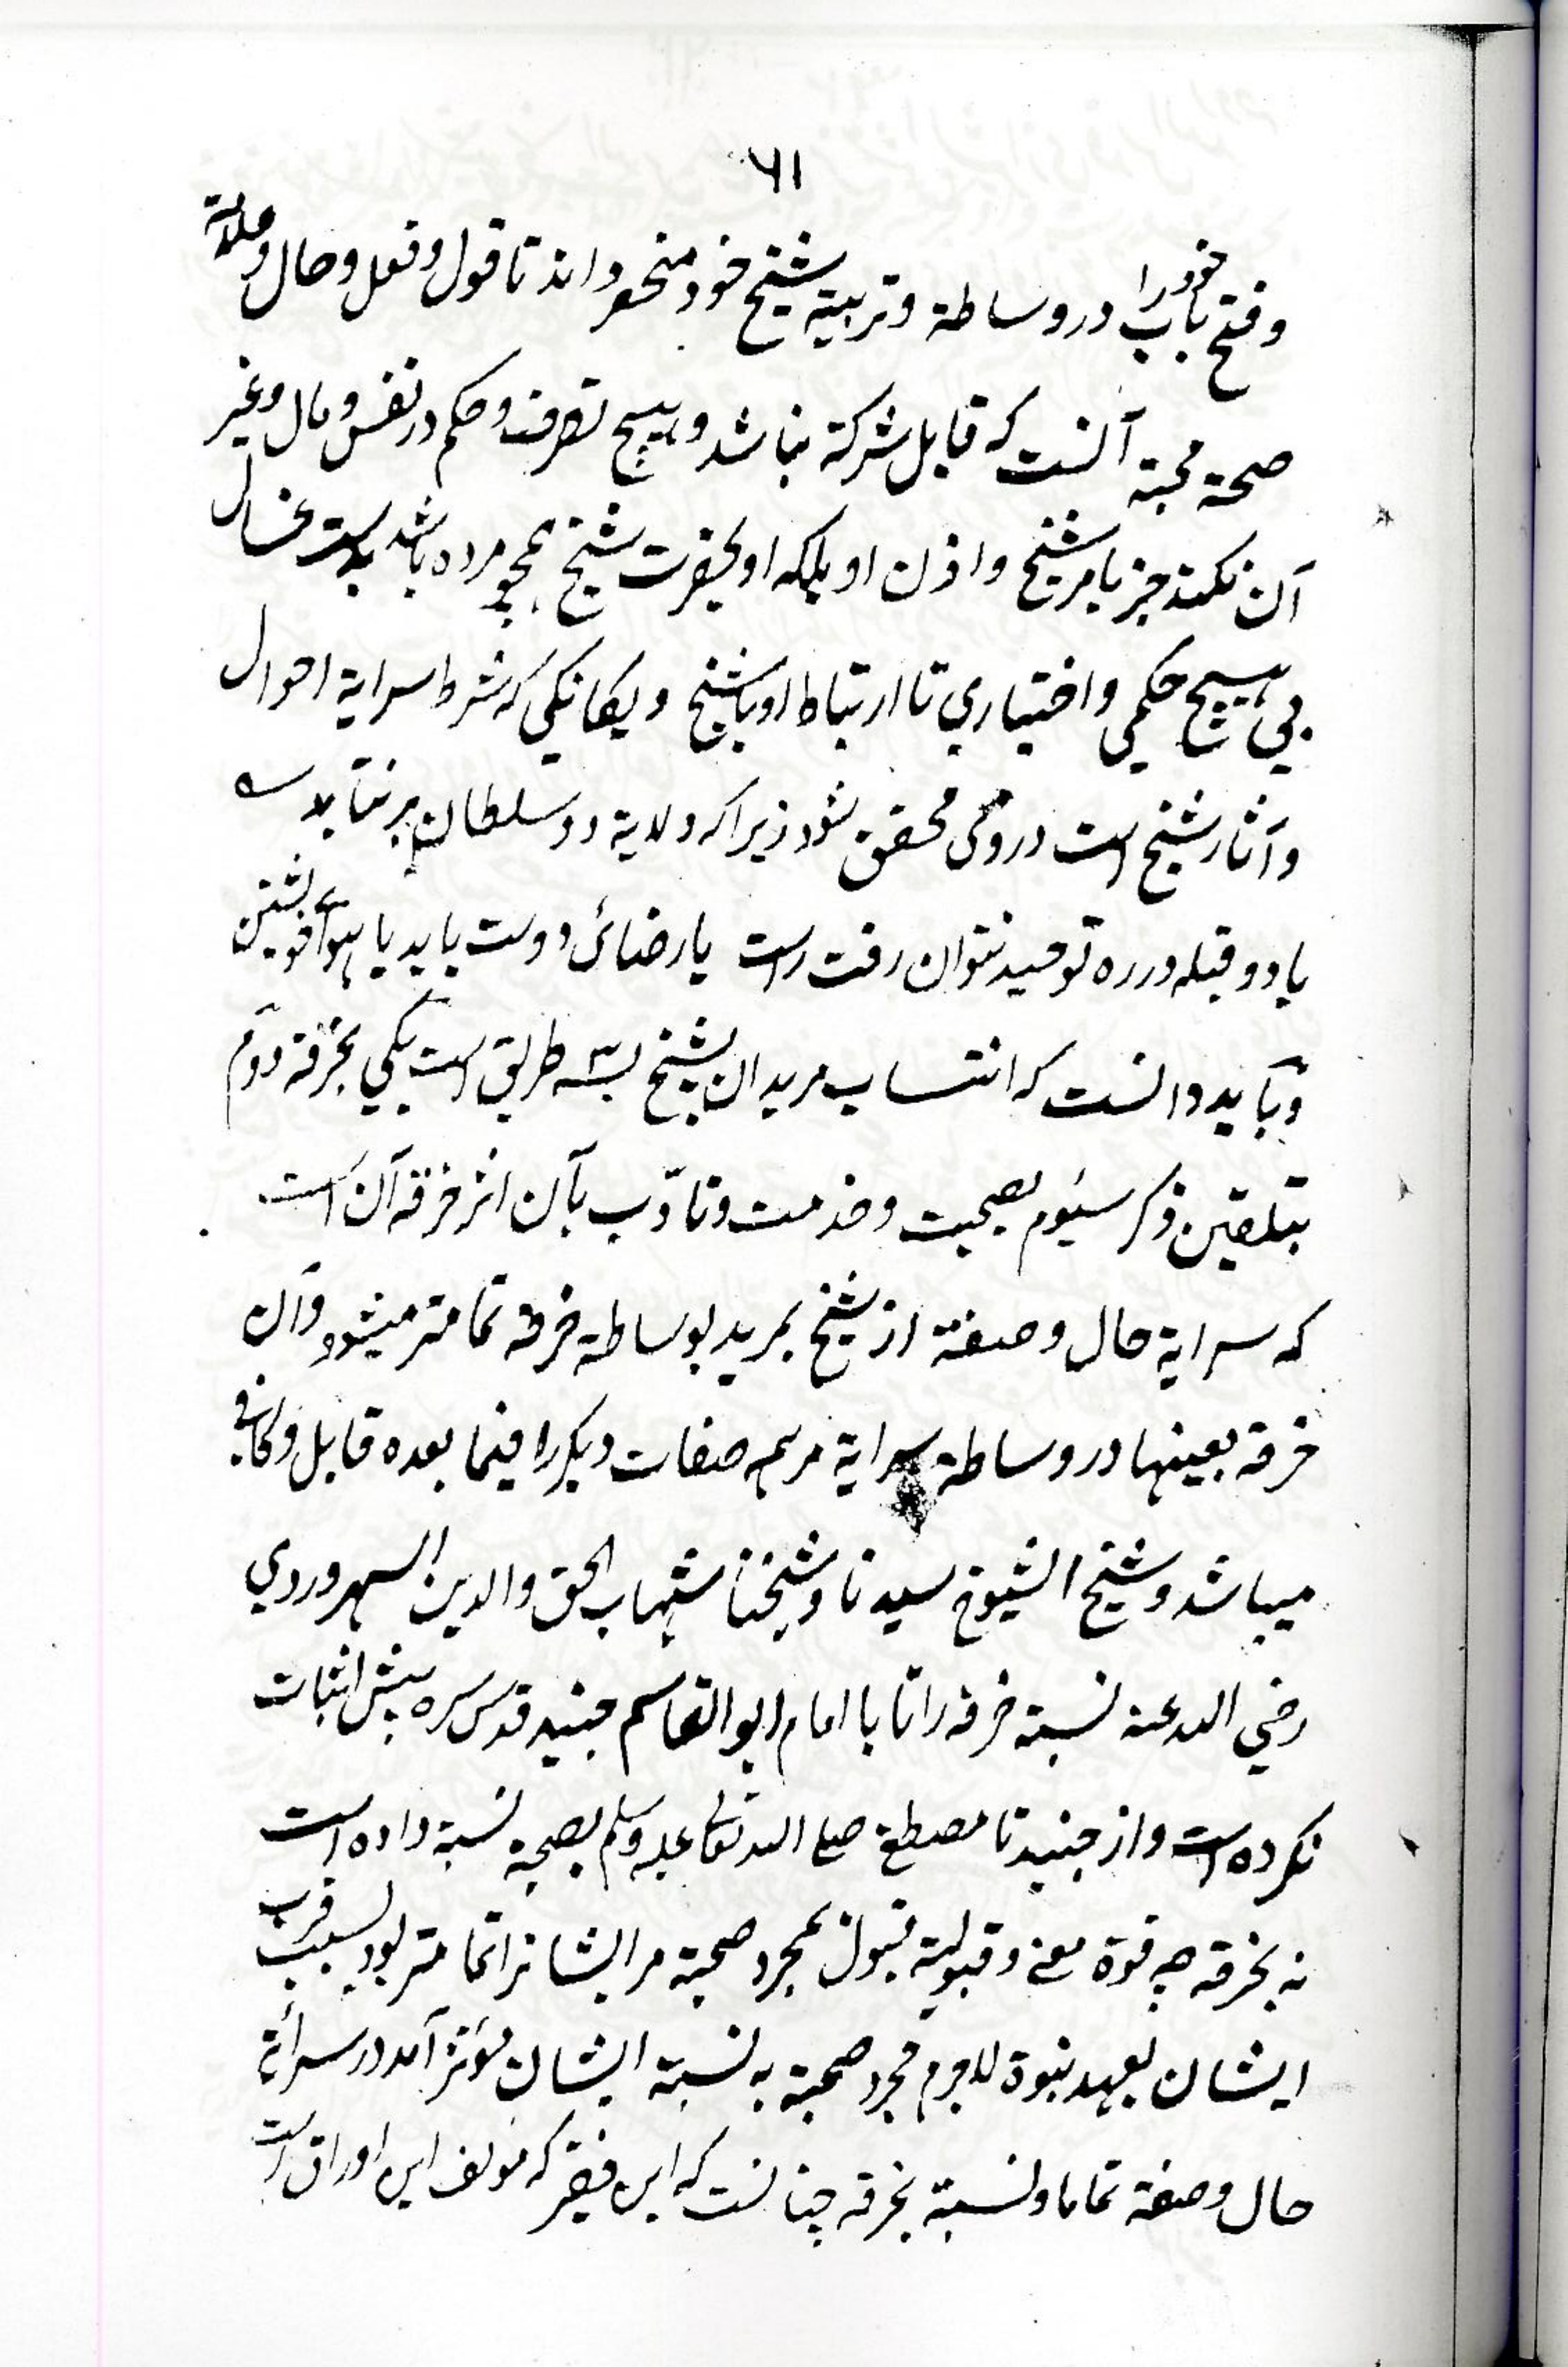 ٦١
وفتح باب خود را در وساطة وتربية شیخ خود منحصر داند تا قول و فعل و حال و
صحة محبة آنست که قابل شرکة نباشد و هیچ تصرف و حکم در نفس و مال و غیر
آن نکند جز بامر شیخ و اذن او بلکه او بحضرت شیخ همچو مرده باشد بدست غسال
بی هیچ حکمی و اختیاري تا ارتباط او باشیخ و یکانکي که شرط سرایة احوال
و آثار شیخ است دروی محقق شود زیرا که ولایة دو سلطان بر نتابد
با دو قبله در ره توحید نتوان رفت راست یا رضائ دوست باید یا هوآ خویشتن
و بآید دانست که انتساب مریدان بشیخ بسه طریق است یکي بخرقة دوم
بتلقین ذکر سیوم بصحبت و خدمت و تادّب بآن اثر خرقه آن است
که سرایة حال و صفة از شیخ بمرید بوساطة خرقه تمامتر میشود و آن
خرقه بعینها در وساطة سرایة مر همه صفات دیکر را فیما بعده قابل و کافی
میباشد و شیخ الشیوخ سیدنا و شیخنا شهاب الحق والدین السهروردي
رضي الله عنه نسبة خرقه را تا با امام ابو القاسم جنید قدس سره بیش اثبات
نکرده است و از جنید تا مصطفے صلے الله تعالی علیه وسلم بصحبة نسبة داده است
نه بخرقه چه قوة معنے و قبولیة قبول بمجرد صحبة مر ایشانرا تمامتر بود بسبب قرب
ایشان بعهد نبوة لاجرم مجرد صحبة به نسبة ایشان مؤثر آمد در سرایة
حال و صفة تماما و نسبة بخرقه چنانست که این فقیر که مؤلف این اوراق است